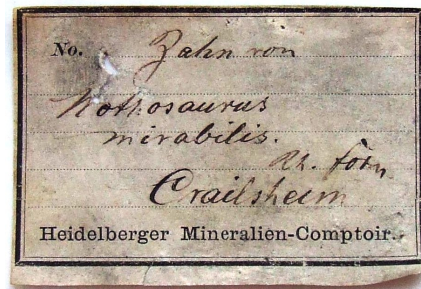 No. Zahn von
Nothosaurus
mirabilis.
Crailsheim
Heidelberger Mineralien-Comptoir.